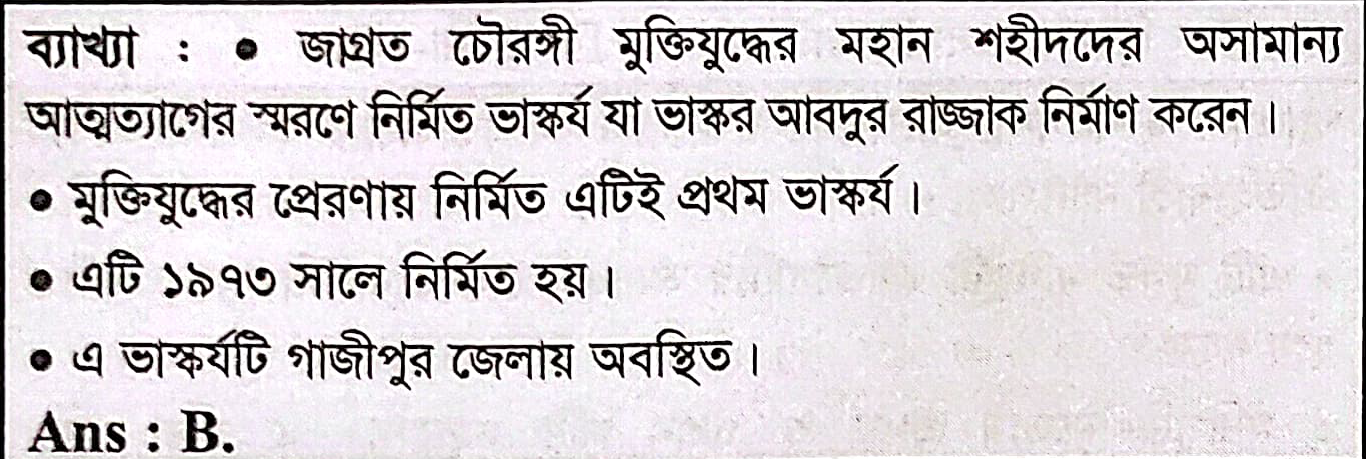 ব্যাখ্যা : ● জাগ্রত চৌরঙ্গী মুক্তিযুদ্ধের মহান শহীদদের অসামান্য
আত্মত্যাগের স্মরণে নির্মিত ভাস্কর্য যা ভাস্কর আবদুর রাজ্জাক নির্মাণ করেন।
● মুক্তিযুদ্ধের প্রেরণায় নির্মিত এটিই প্রথম ভাস্কর্য।
● এটি ১৯৭৩ সালে নির্মিত হয়।
● এ ভাস্কর্যটি গাজীপুর জেলায় অবস্থিত।
Ans : B.